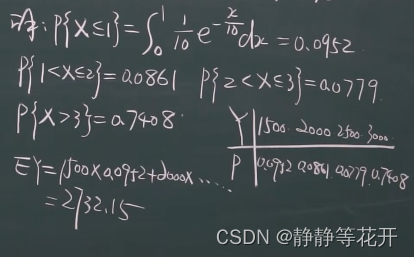 解:P{X≤1}=∫₀¹ 1/10 e^(-x/10) dx=0.0952
P{1<X≤2}=0.0861 P{2<X≤3}=0.0779
P{X>3}=0.7408
Y 1500 2000 2500 3000
P 0.0952 0.0861 0.0779 0.7408
EY=1500×0.0952+2000×……
=2732.15
CSDN @静静等花开